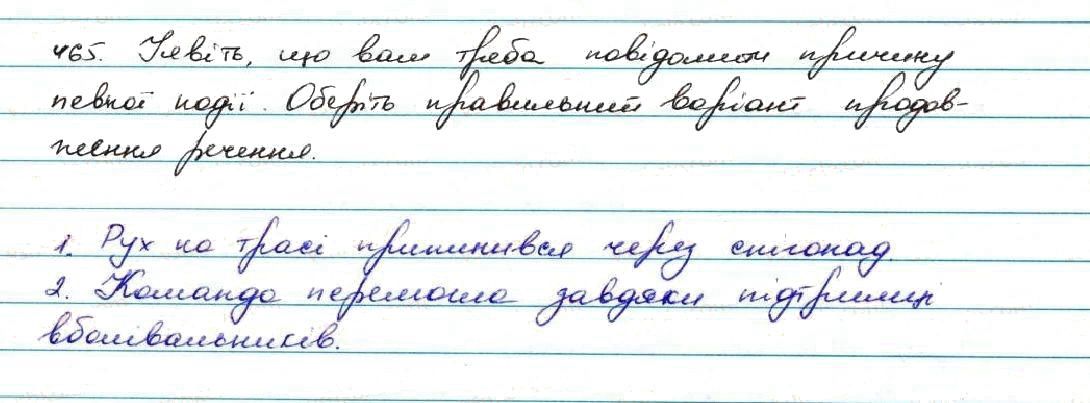 465. Уявіть, що вам треба повідомити причину
певної події. Оберіть правильний варіант продов-
ження речення.
1. Рух на трасі припинився через снігопад
2. Команда перемогла завдяки підтримці
вболівальників.